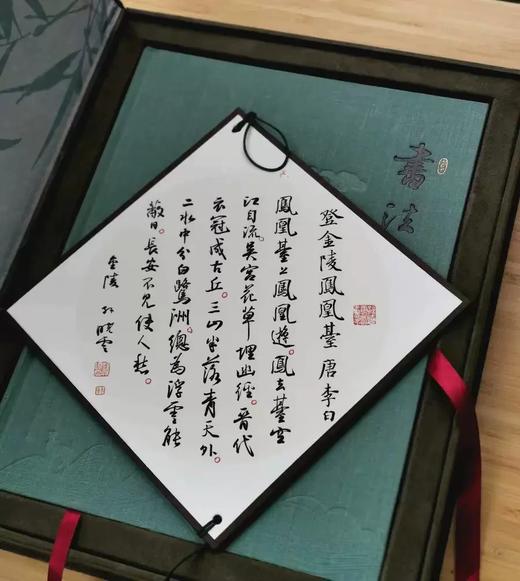 登金陵鳳凰臺 唐 李白
鳳凰臺上鳳凰遊。鳳去臺空
江自流。吳宮花草埋幽徑。晉代
衣冠成古丘。三山半落青天外。
二水中分白鷺洲。總為浮雲能
蔽日。長安不見使人愁。
金陵 孙晓雲
書法